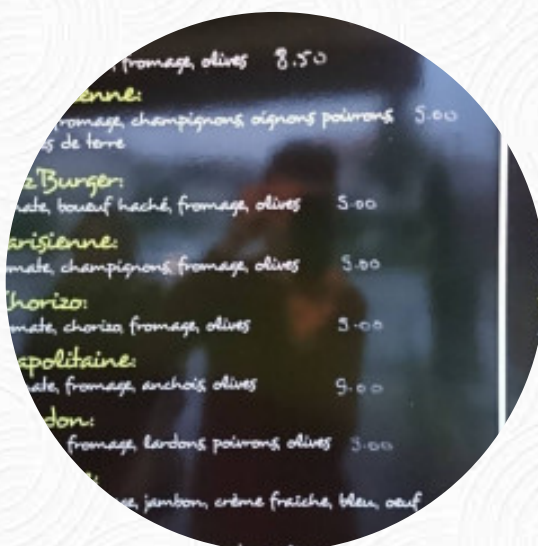 fromage, olives 8.50
enne:
fromage, champignons, oignons poivrons 5.00
s de terre
z'Burger:
mate, boueuf haché, fromage, olives 5.00
arisienne:
mate, champignons, fromage, olives 5.00
Chorizo:
mate, chorizo, fromage, olives 5.00
apolitaine:
ate, fromage, anchois, olives 9.00
don:
fromage, lardons, poivrons, olives
ge, jambon, crème fraîche, bleu, oeuf